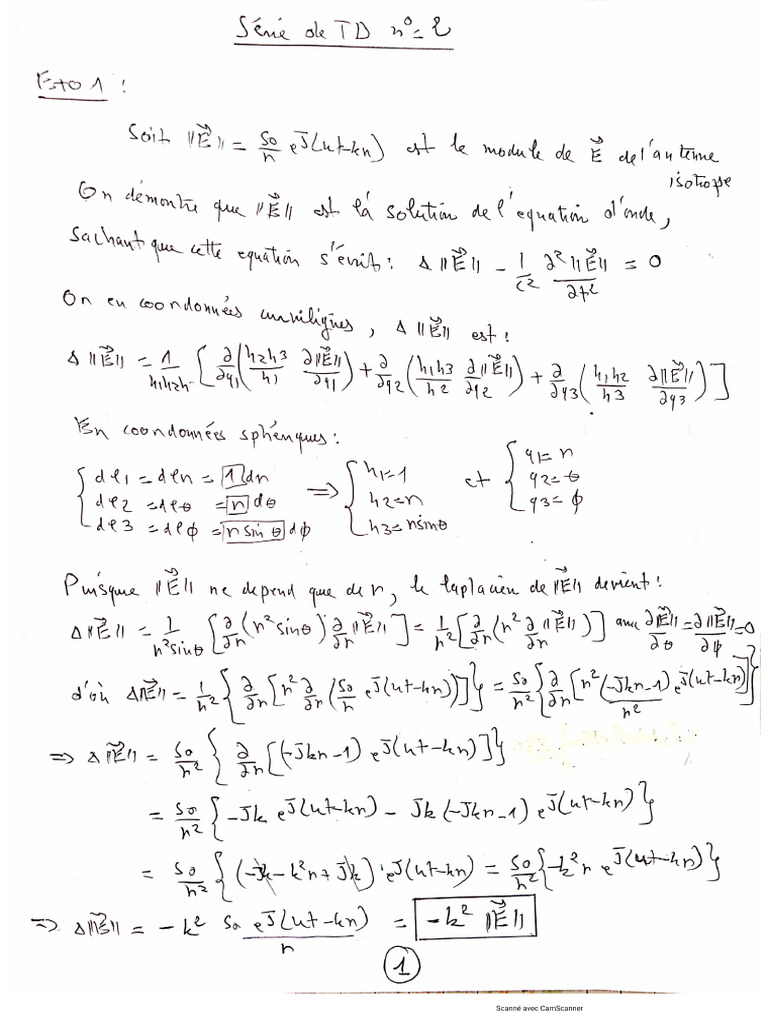 Série de TD n°=2
Exo 1 :
Soit ||E⃗|| = S0/r e^J(ωt-kr) est le module de E⃗ de l'antenne
isotrope
On démontre que ||E⃗|| est la solution de l'equation d'onde,
Sachant que cette equation s'écrit : Δ||E⃗|| - 1/c² ∂²||E⃗||/∂t² = 0
On en coordonnées curviligues, Δ||E⃗|| est :
Δ||E⃗|| = 1/h1h2h3 [∂/∂q1 (h2h3/h1 ∂||E⃗||/∂q1) + ∂/∂q2 (h1h3/h2 ∂||E⃗||/∂q2) + ∂/∂q3 (h1h2/h3 ∂||E⃗||/∂q3)]
En coordonnées sphériques :
{ dl1 = dlr = 1 dr ⇒ { h1=1 et { q1=r
dl2 = dlθ = r dθ h2=r q2=θ
dl3 = dlϕ = r sin θ dϕ h3=r sinθ q3=ϕ
Puisque ||E⃗|| ne depend que de r, le laplacien de ||E⃗|| devient :
Δ||E⃗|| = 1/r²sinθ [∂/∂r (r²sinθ) ∂/∂r ||E⃗||] = 1/r² [∂/∂r (r² ∂/∂r ||E⃗||)] avec ∂||E⃗||/∂θ = ∂||E⃗||/∂ϕ = 0
d'où Δ||E⃗|| = 1/r² {∂/∂r [r² ∂/∂r (S0/r e^J(ωt-kr))]} = S0/r² {∂/∂r [r² (-Jkr-1)/r² e^J(ωt-kr)]}
⇒ Δ||E⃗|| = S0/r² {∂/∂r [(-Jkr-1) e^J(ωt-kr)]}
= S0/r² {-Jk e^J(ωt-kr) - Jk (-Jkr-1) e^J(ωt-kr)}
= S0/r² {(-Jk - k²r + Jk) e^J(ωt-kr)} = S0/r² {-k²r e^J(ωt-kr)}
⇒ Δ||E⃗|| = -k² S0 e^J(ωt-kr)/r = -k² ||E⃗||
1
Scanné avec CamScanner